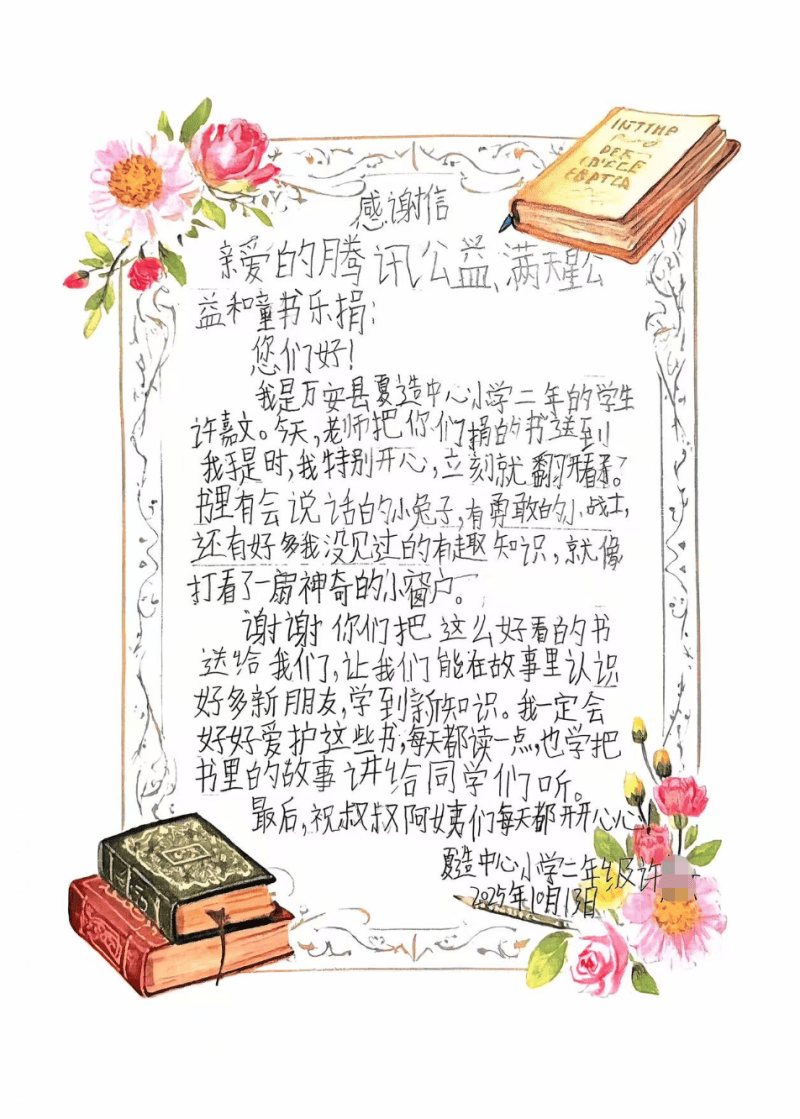 INTTHE
DEE
感谢信
亲爱的腾讯公益、满天星公
益和童书乐捐：
您们好！
我是万安县夏造中心小学二年的学生
许嘉文。今天，老师把你们捐的书送到
我手是时，我特别开心，立刻就翻开看。
书里有会说话的小兔子，有勇敢的小战士，
还有好多我没见过的有趣知识，就像
打看了一扇神奇的小窗户。
谢谢你们把这么好看的书
送给我们了，让我们能在故事里认识
好多新朋友，学到新知识。我一定会
好好爱护这些书，每天都读一点，也学把
书里的故事讲给同学们听。
最后，祝叔叔阿姨们每天都开开心心
夏造中心小学二年级许
2025年10月13日